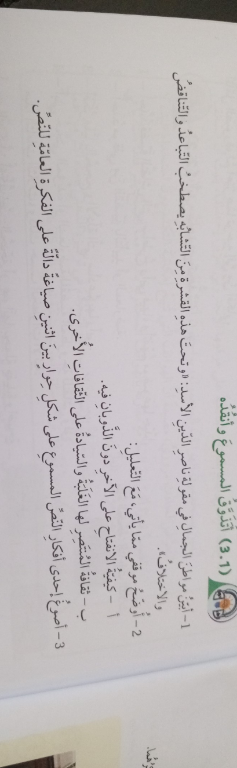 (3.1) أتذوّقُ المسموعَ وأنقدُه
1- أبيّنُ مواطنَ الجمالِ في مقولةِ ناصر الدّين الأسد: «وتحتَ هذهِ القشرةِ مِنَ التّشابُهِ يصطخبُ التّباعدُ والتّناقضُ
والاختلافُ».
2- أُوضّحُ موقفي ممّا يأتي، مَعَ التّعليلِ:
أ - كيفيّةُ الانفتاحِ على الآخرِ دونَ الذّوبانِ فيه.
ب - ثقافةُ المُنتصرِ لها الغَلَبةُ والسّيادةُ على الثّقافاتِ الأُخرى.
3- أصوغُ إحدى أفكارِ النّصِّ المسموعِ على شكلِ حِوارٍ بينَ اثنينِ صياغةً دالّةً على الفكرةِ العامّةِ للنّصِّ.